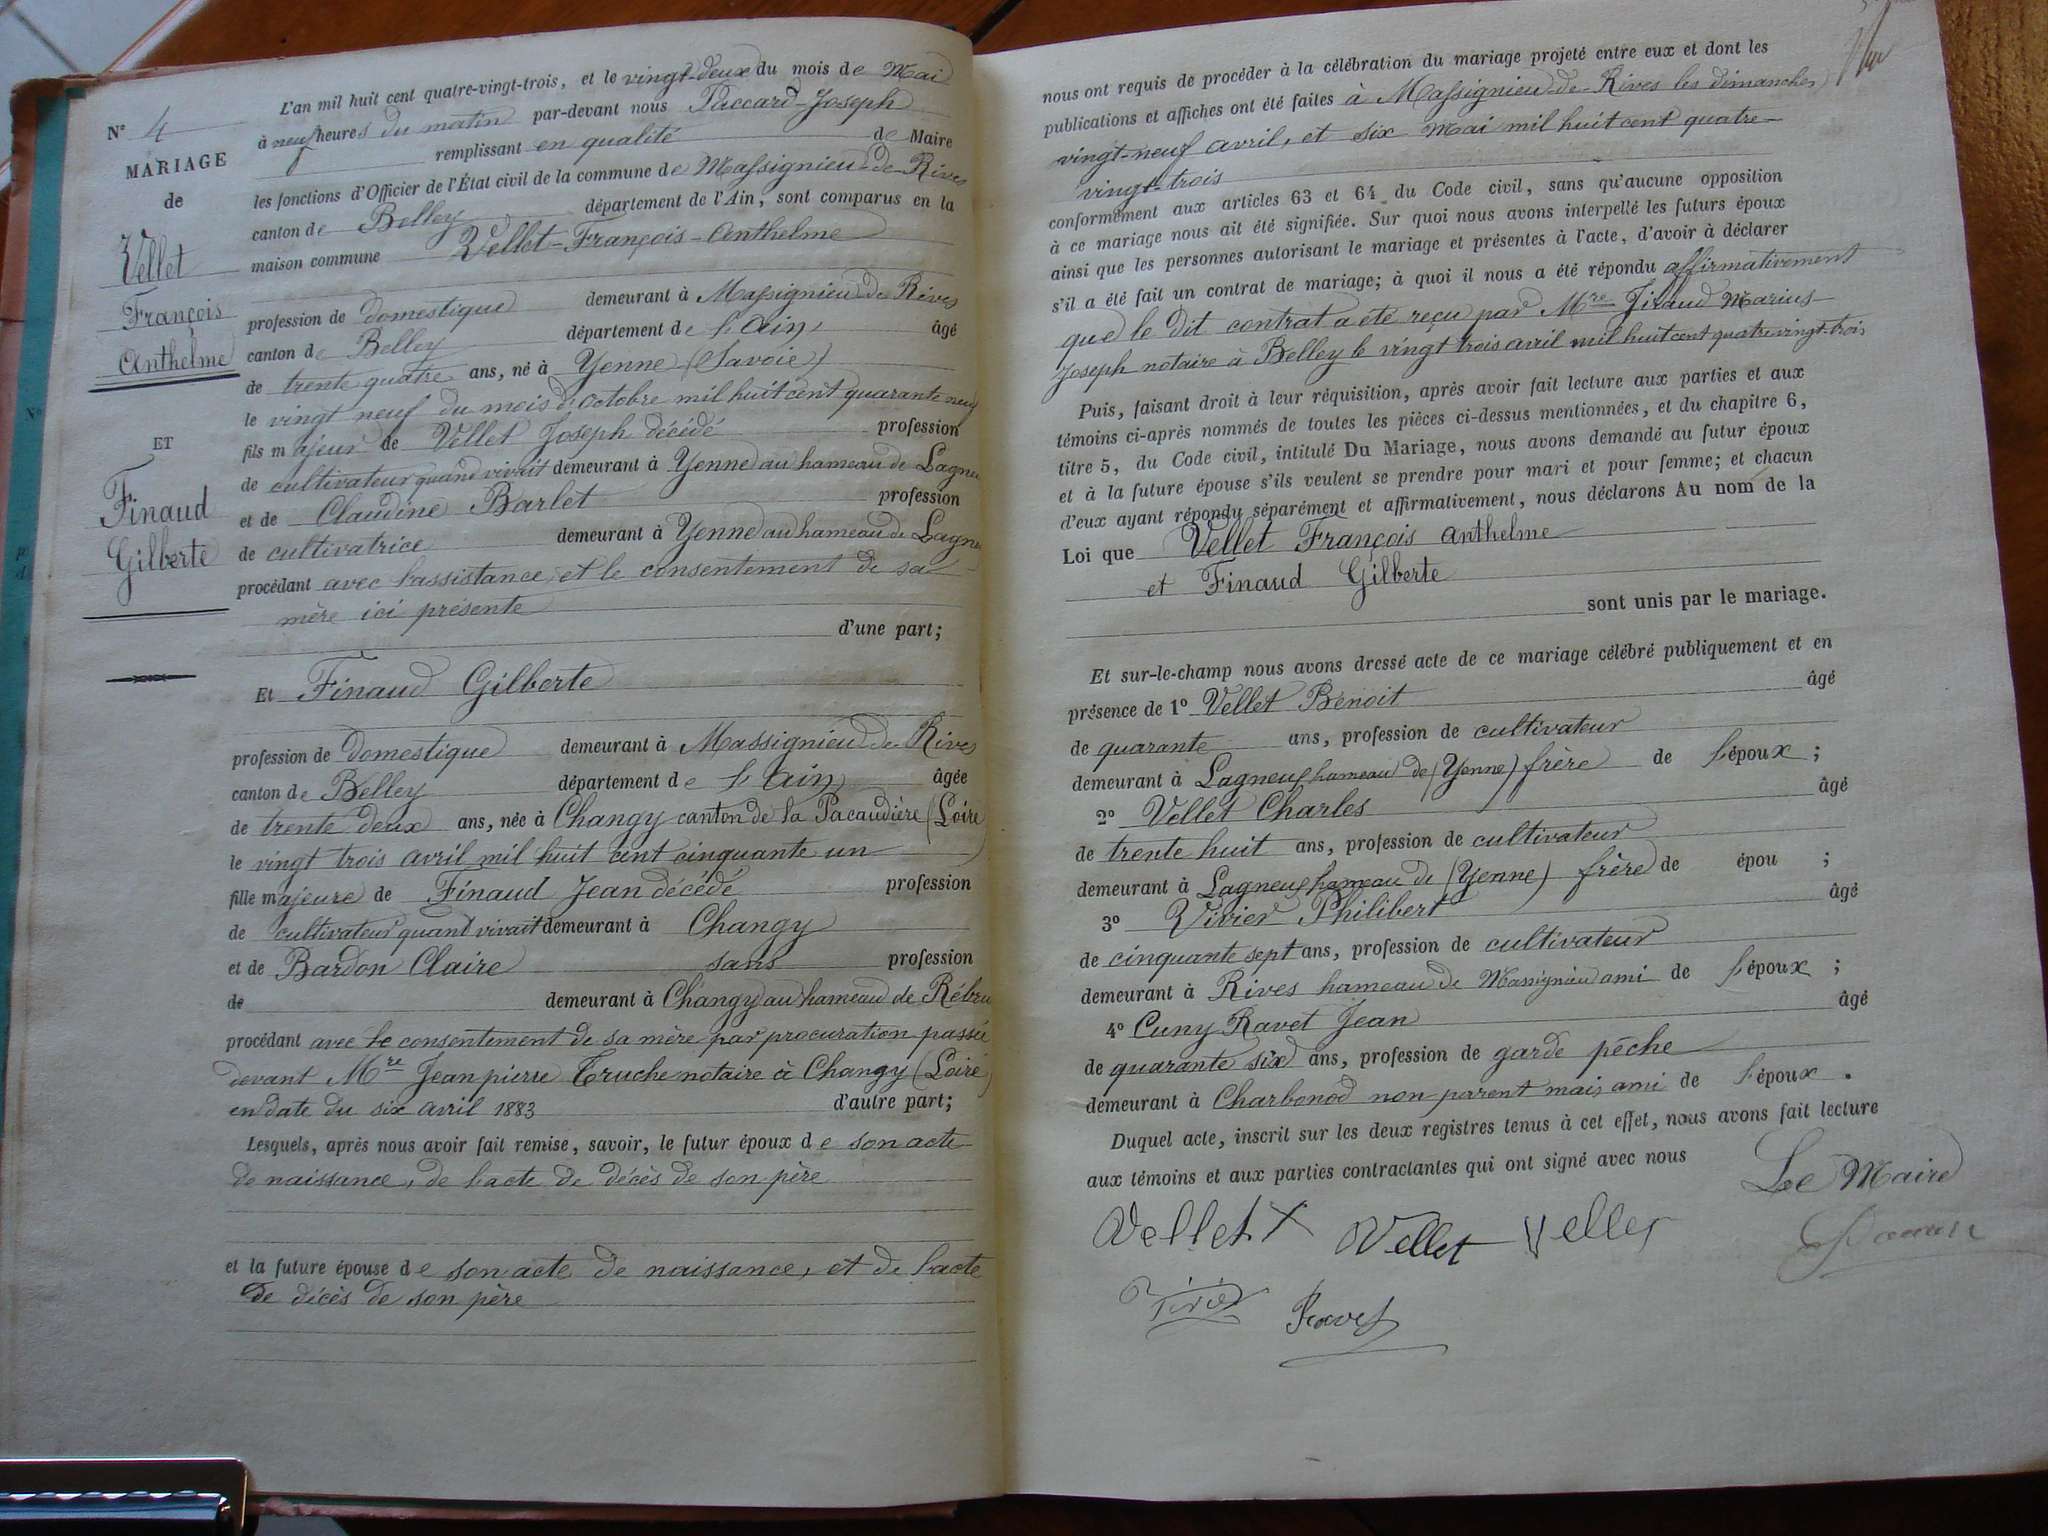 N° 4
MARIAGE
de
Vellet
François
Anthelme
ET
Finaud
Gilberte
L'an mil huit cent quatre-vingt-trois, et le vingt-deux du mois de Mai
à neuf heures du matin par-devant nous Paccard-Joseph
remplissant en qualité de Maire
les fonctions d'Officier de l'État civil de la commune de Massignieu-de-Rives
canton de Belley département de l'Ain, sont comparus en la
maison commune Vellet-François-Anthelme
profession de domestique demeurant à Massignieu de Rives
canton de Belley département de l'Ain, âgé
de trente quatre ans, né à Yenne (Savoie)
le vingt neuf du mois d'octobre mil huit cent quarante neuf
fils majeur de Vellet Joseph décédé profession
de cultivateur quand vivait demeurant à Yenne au hameau de Lagneu
et de Claudine Barlet profession
de cultivatrice demeurant à Yenne au hameau de Lagne
procédant avec l'assistance et le consentement de sa
mère ici présente
d'une part;
Et Finaud Gilberte
profession de domestique demeurant à Massignieu de Rives
canton de Belley département de l'ain, âgée
de trente deux ans, née à Changy canton de la Pacaudière (Loire)
le vingt trois avril mil huit cent cinquante un
fille majeure de Finaud Jean décédé profession
de cultivateur quant vivait demeurant à Changy
et de Bardon Claire sans profession
de demeurant à Changy au hameau de Rébru
procédant avec le consentement de sa mère par procuration passée
devant Mre Jean pierre Truche notaire à Changy (Loire)
en date du six avril 1883 d'autre part;
Lesquels, après nous avoir fait remise, savoir, le futur époux de son acte
de naissance, de l'acte de décès de son père
et la future épouse de son acte de naissance, et de l'acte
de décès de son père
nous ont requis de procéder à la célébration du mariage projeté entre eux et dont les
publications et affiches ont été faites à Massignieu-de-Rives les dimanches
vingt-neuf avril, et six Mai mil huit cent quatre-
vingt-trois
conformément aux articles 63 et 64 du Code civil, sans qu'aucune opposition
à ce mariage nous ait été signifiée. Sur quoi nous avons interpellé les futurs époux
ainsi que les personnes autorisant le mariage et présentes à l'acte, d'avoir à déclarer
s'il a été fait un contrat de mariage; à quoi il nous a été répondu affirmativement
que le dit contrat a été reçu par Mre Jiraud Marius
Joseph notaire à Belley le vingt trois avril mil huit cent quatre vingt-trois
Puis, faisant droit à leur réquisition, après avoir fait lecture aux parties et aux
témoins ci-après nommés de toutes les pièces ci-dessus mentionnées, et du chapitre 6,
titre 5, du Code civil, intitulé Du Mariage, nous avons demandé au futur époux
et à la future épouse s'ils veulent se prendre pour mari et pour femme; et chacun
d'eux ayant répondu séparément et affirmativement, nous déclarons Au nom de la
Loi que Vellet François Anthelme
et Finaud Gilberte
sont unis par le mariage.
Et sur-le-champ nous avons dressé acte de ce mariage célébré publiquement et en
présence de 1° Vellet Benoit âgé
de quarante ans, profession de cultivateur
demeurant à Lagneux hameau de (Yenne) frère de l'époux ;
2° Vellet Charles âgé
de trente huit ans, profession de cultivateur
demeurant à Lagneux hameau de (Yenne) frère de épou ;
3° Vivier Philibert âgé
de cinquante sept ans, profession de cultivateur
demeurant à Rives hameau de Massignieu ami de l'époux ;
4° Cuny Ravet Jean âgé
de quarante six ans, profession de garde pêche
demeurant à Charbonod non parent mais ami de l'époux.
Duquel acte, inscrit sur les deux registres tenus à cet effet, nous avons fait lecture
aux témoins et aux parties contractantes qui ont signé avec nous
Le Maire
Vellet Vellet Vellet
Vivier Ravet